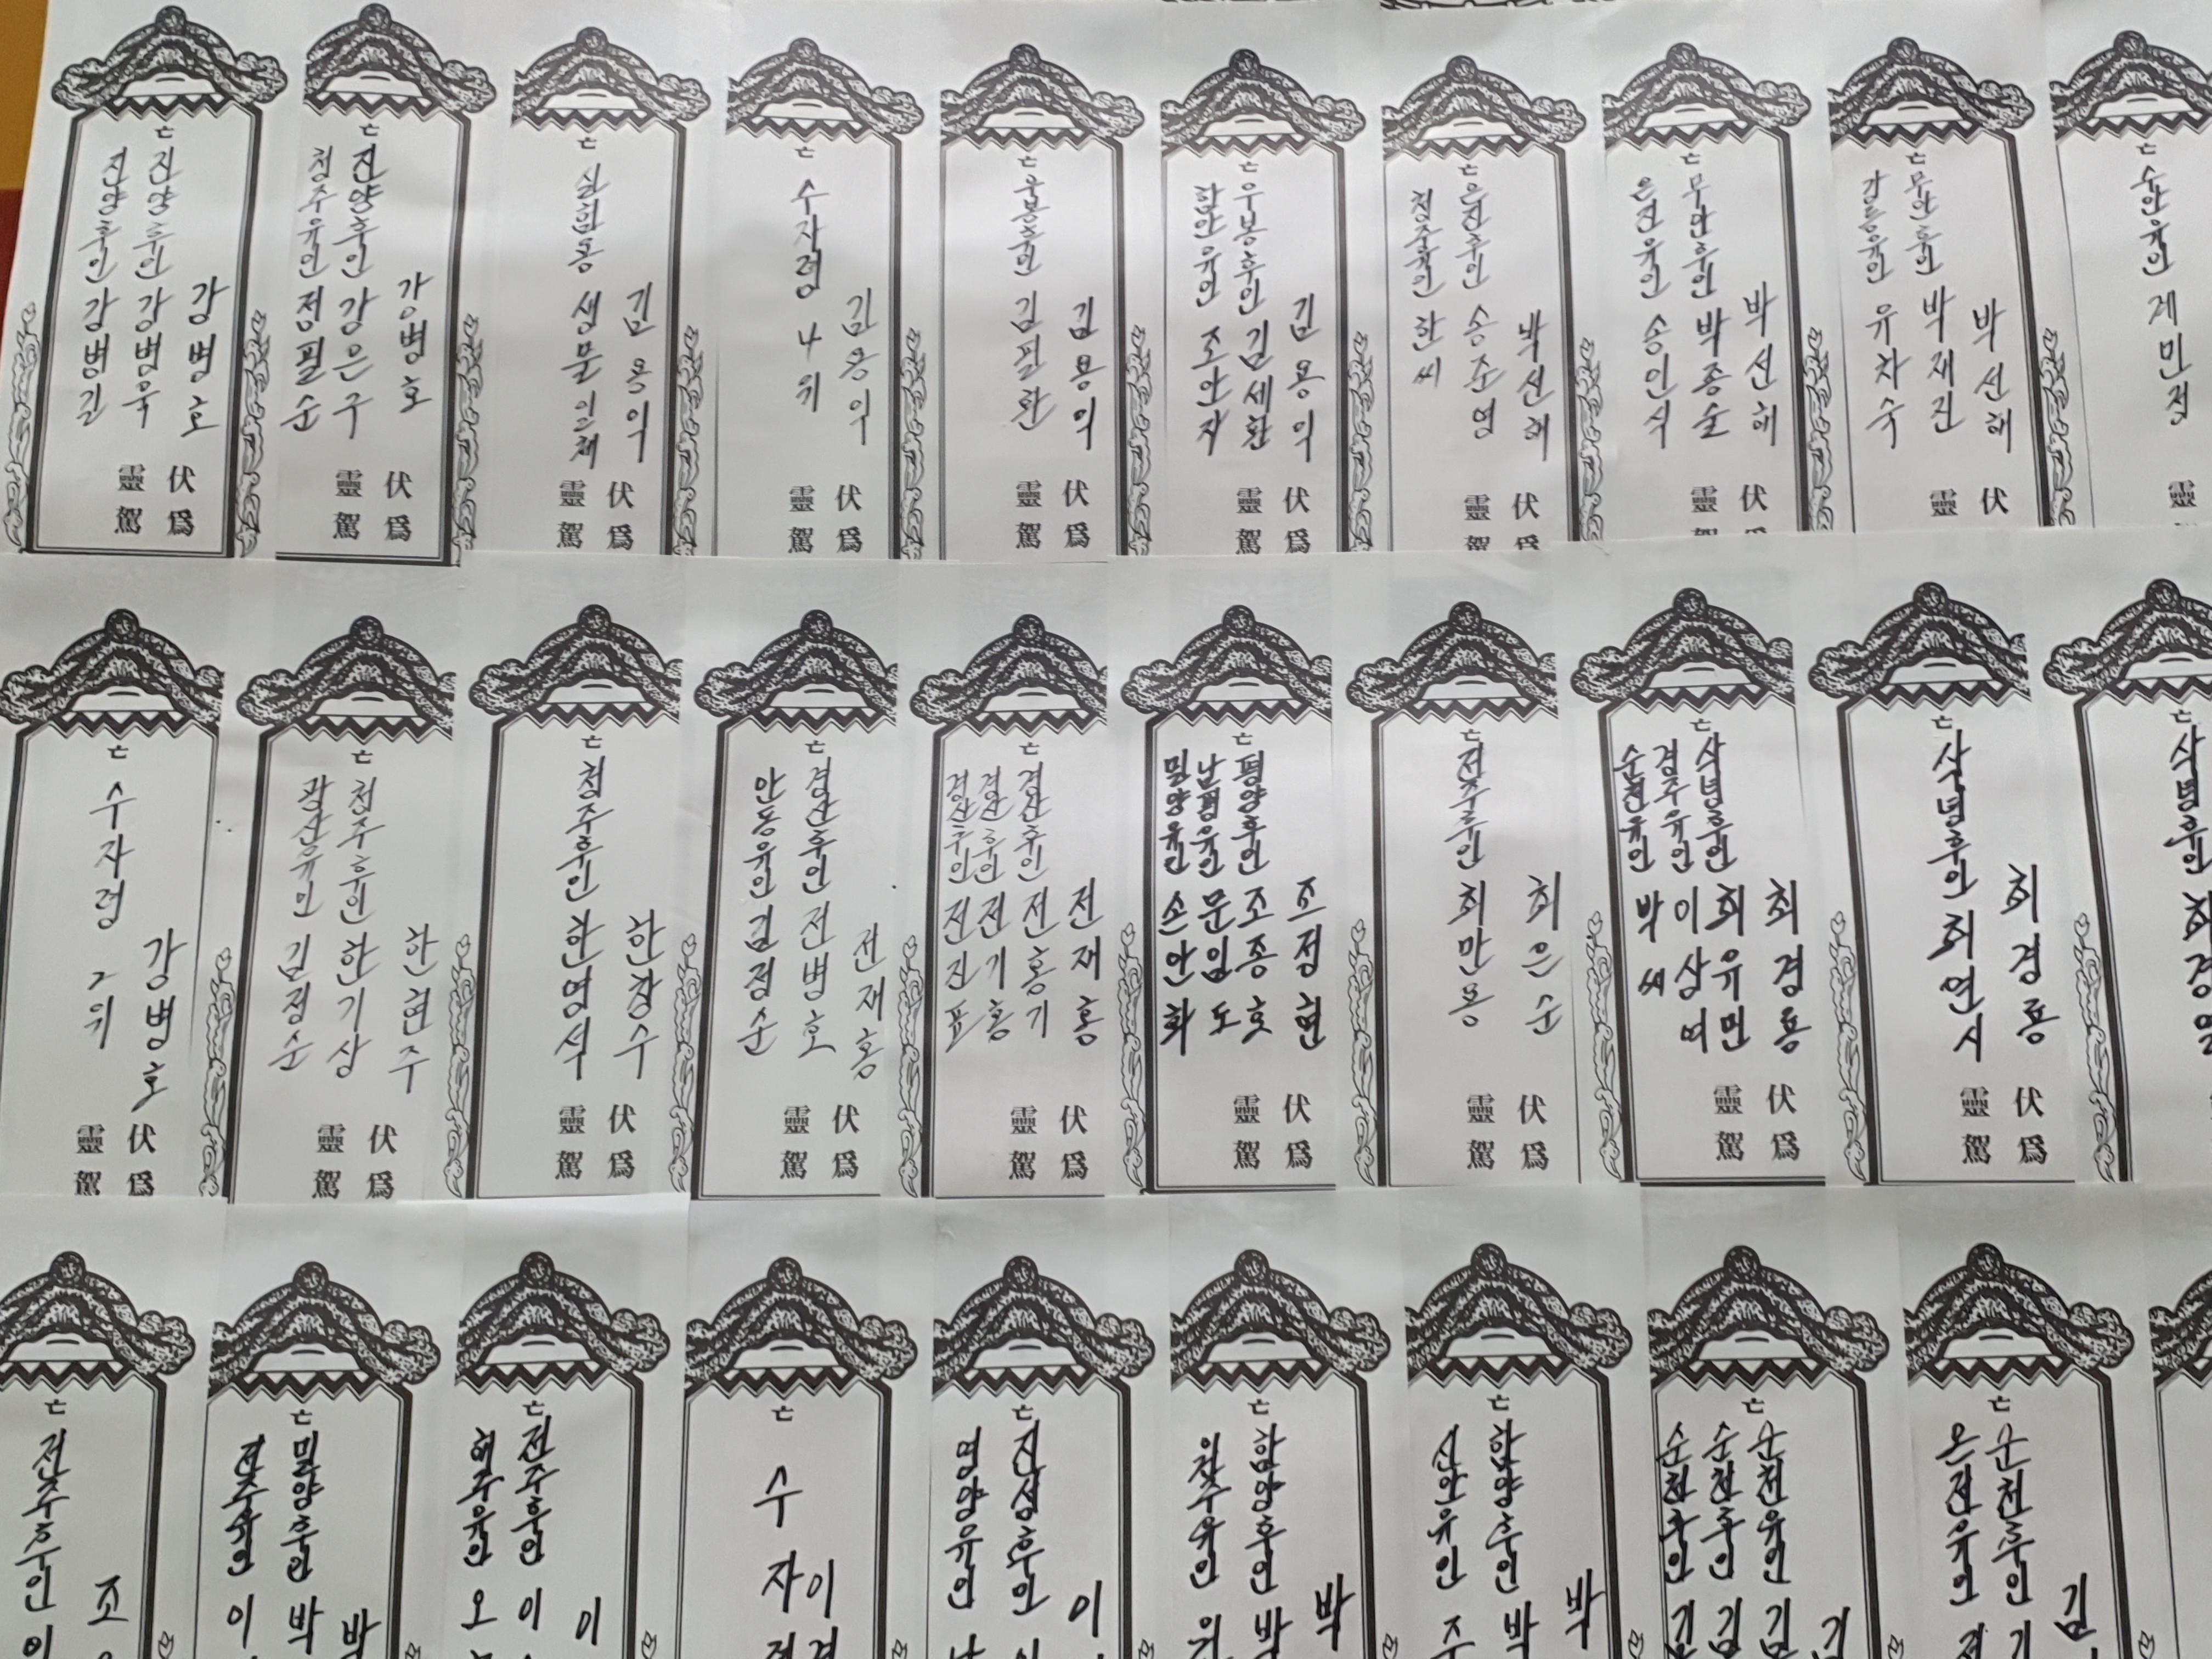 亡
진양후인 강병길
진양후인 강병욱
강병호
靈駕
伏爲
亡
청주유인 정필순
진양후인 강은구
강병호
靈駕
伏爲
亡
실험동 생물일체
김용익
靈駕
伏爲
亡
수자령 4위
김용익
靈駕
伏爲
亡
우봉후인 김필환
김용익
靈駕
伏爲
亡
함안유인 조안자
우봉후인 김세환
김용익
靈駕
伏爲
亡
청주유인 한씨
은진후인 송준영
박선해
靈駕
伏爲
亡
은진유인 송인식
무안후인 박종술
박선해
靈駕
伏爲
亡
강릉유인 유차수
무안후인 박재진
박선해
靈
伏
亡
수안유인 계민정
靈
亡
수자령 2위
강병호
靈駕
伏爲
亡
광산유인 김정순
청주후인 한기상
한현주
靈駕
伏爲
亡
청주후인 한명석
한창수
靈駕
伏爲
亡
안동유인 김점순
경산후인 전병호
전재홍
靈駕
伏爲
亡
경산후인 전진표
경산후인 전기홍
경산후인 전홍기
전재홍
靈駕
伏爲
亡
밀양유인 손안화
남평유인 문임도
평양후인 조종호
조정현
靈駕
伏爲
亡
전주후인 최만용
최은순
靈駕
伏爲
亡
순천유인 박씨
경주유인 이삼여
삭녕후인 최유민
최경룡
靈駕
伏爲
亡
삭녕후인 최연시
최경룡
靈駕
伏爲
亡
삭녕후인 최경
亡
전주후인 이
조
亡
전주유인 이
밀양후인 박
박
亡
해주유인 오
전주후인 이
이
亡
수자령
이
亡
진성후인
이
亡
함양후인 박
박
亡
신안유인 주
함양후인 박
박
亡
순천후인 김
순천후인 김
순천유인 김
김
亡
온진유인
순천후인
김